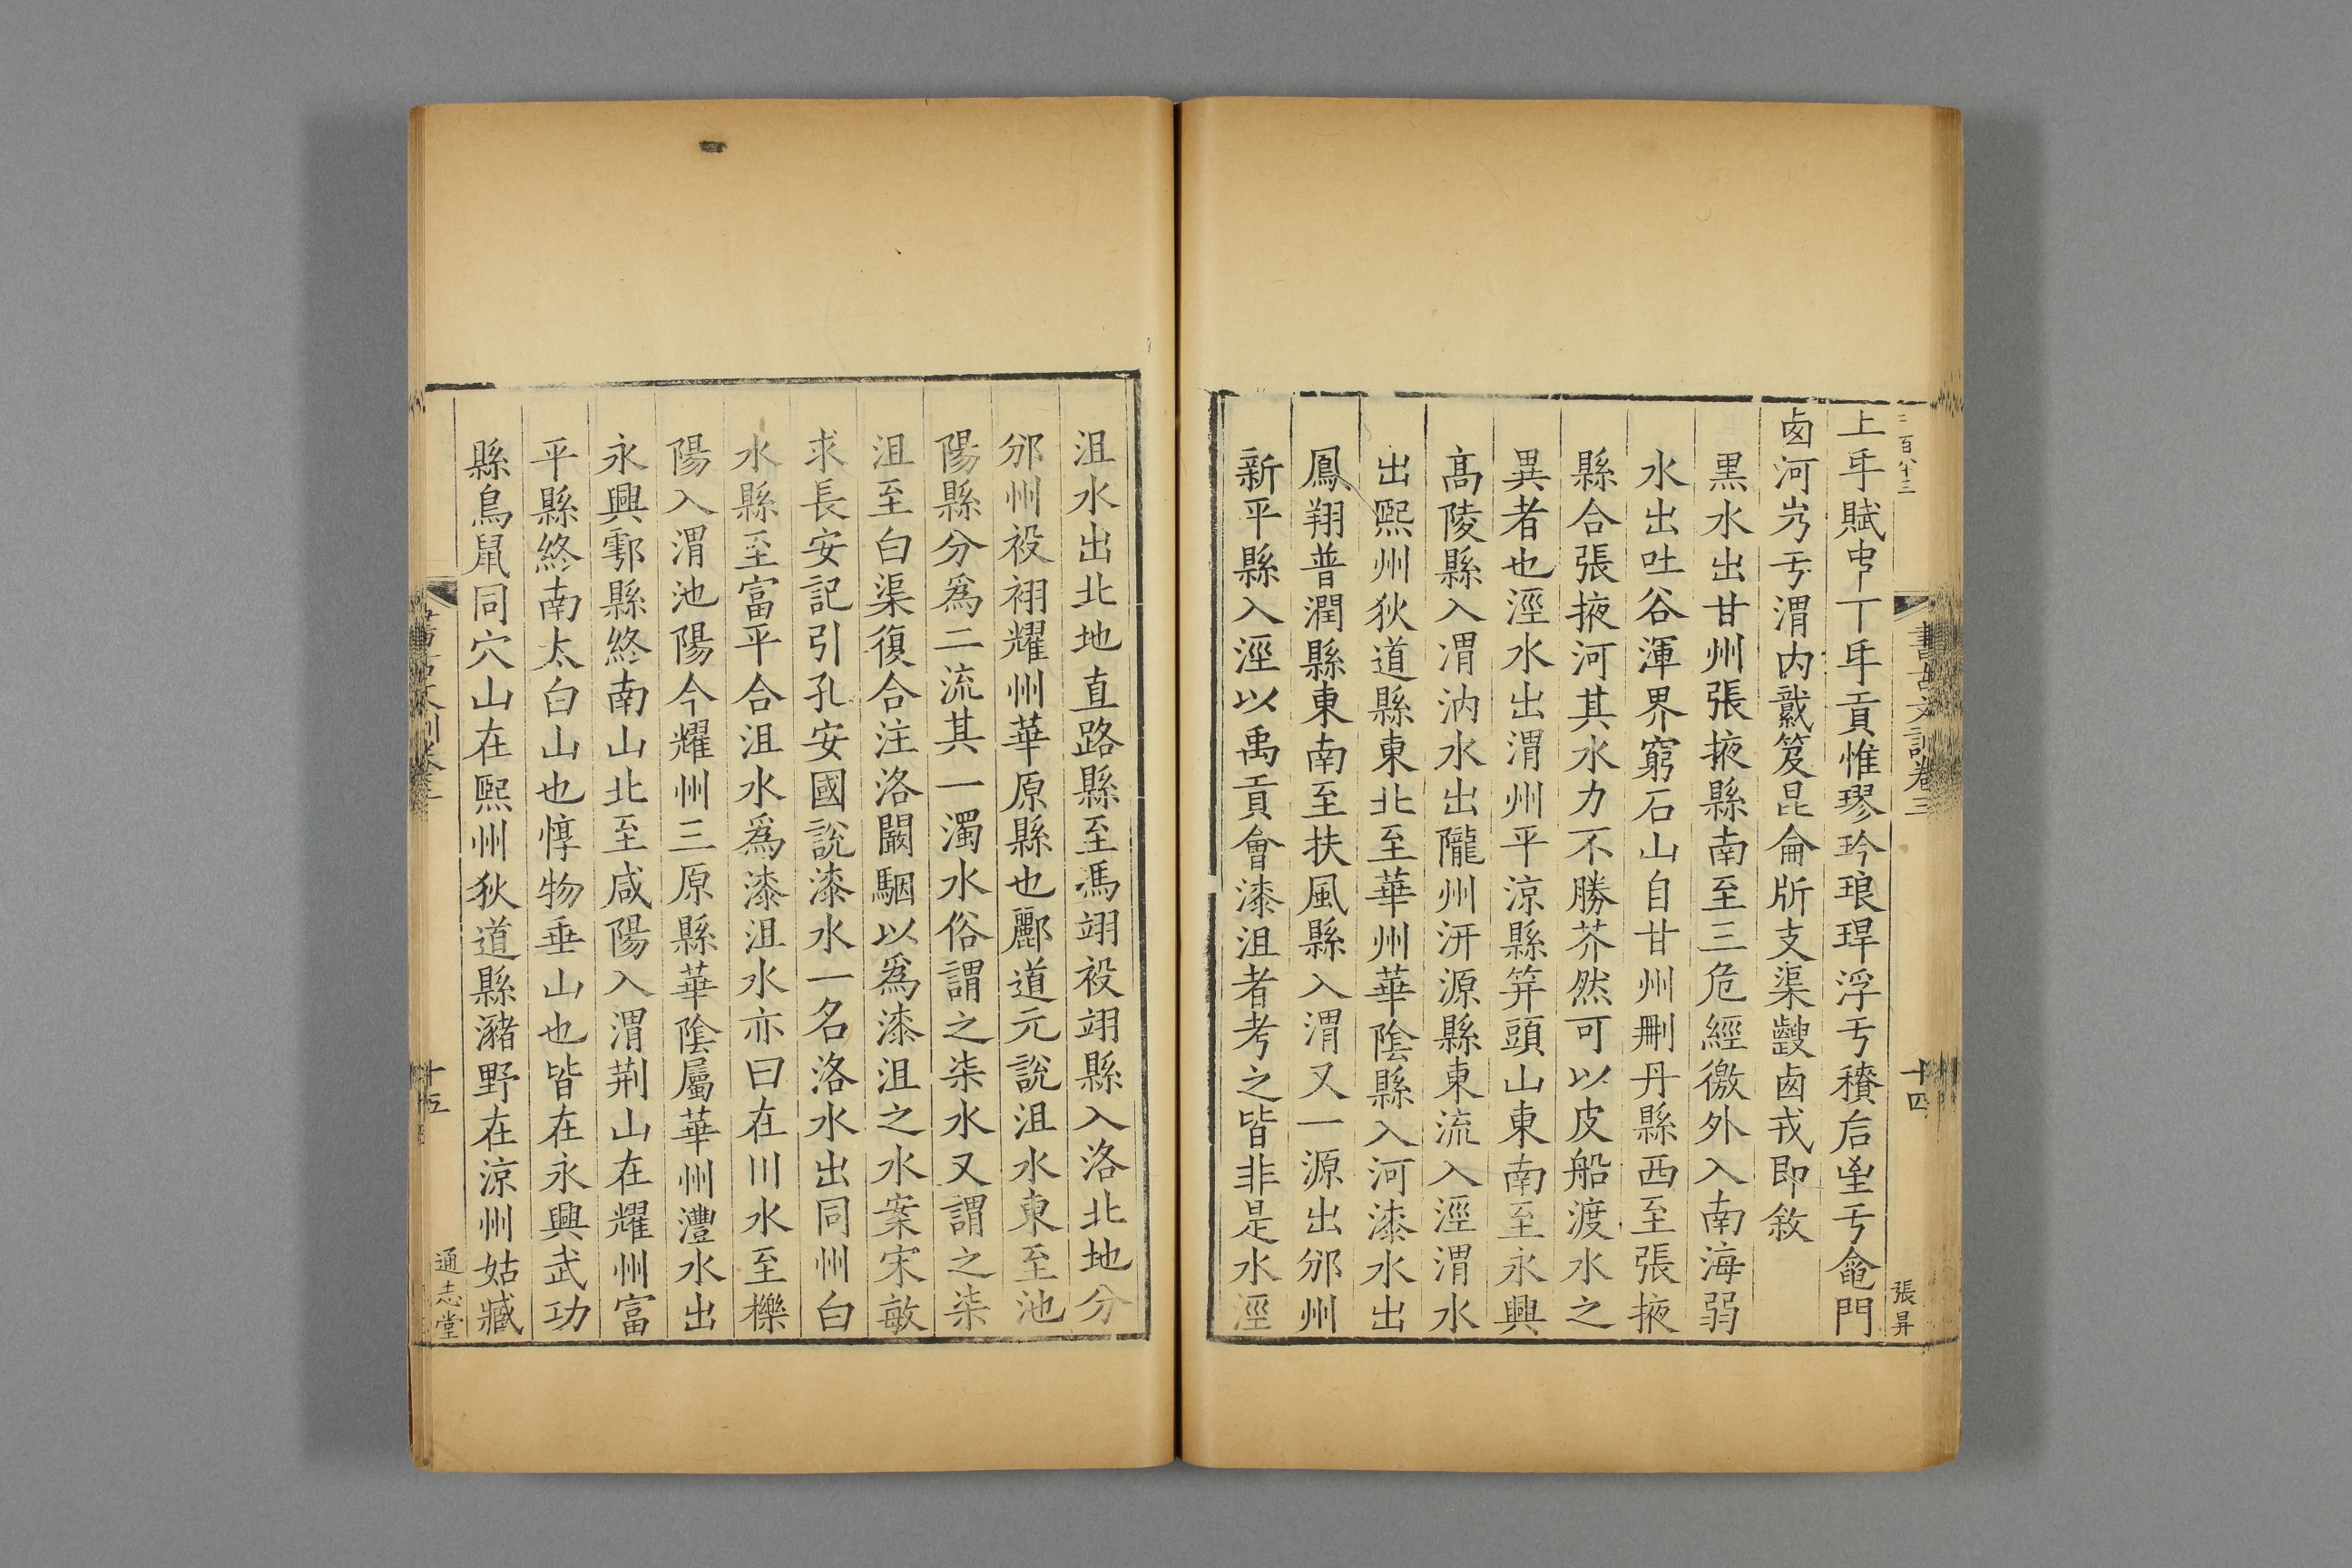 書古文訓卷三
十四
張昇
上𠂹賦中丅𠂹貢惟璆玪琅琾浮亏積后𡶐亏龕門
卥河汭亏渭内𢧢笈昆侖㫁支渠𢿱卥戎即敘
黒水出甘州張掖縣南至三危經徼外入南海弱
水出吐谷渾界窮石山自甘州刪丹縣西至張掖
縣合張掖河其水力不勝芥然可以皮船渡水之
異者也涇水出渭州平涼縣笄頭山東南至永興
髙陵縣入渭汭水出隴州汧源縣東流入涇渭水
出熙州狄道縣東北至華州華陰縣入河漆水出
鳳翔普潤縣東南至扶風縣入渭又一源出邠州
新平縣入涇以禹貢會漆沮者考之皆非是水涇
沮水出北地直路縣至馮翊祋翊縣入洛北地分
邠州祋祤耀州華原縣也酈道元說沮水東至池
陽縣分爲二流其一濁水俗謂之柒水又謂之柒
沮至白渠復合注洛闞駰以爲漆沮之水案宋敏
求長安記引孔安國說漆水一名洛水出同州白
水縣至富平合沮水爲漆沮水亦曰在川水至櫟
陽入渭池陽今耀州三原縣華陰屬華州灃水出
永興鄠縣終南山北至咸陽入渭荆山在耀州富
平縣終南太白山也惇物垂山也皆在永興武功
縣鳥鼠同穴山在熙州狄道縣瀦野在涼州姑臧
十五
通志堂